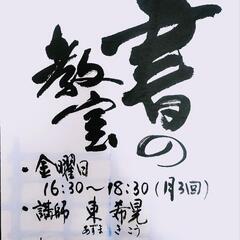 書の
教室
・金曜日
16:30～18:30(月3回)
・講師 東 希晃
あずま きこう